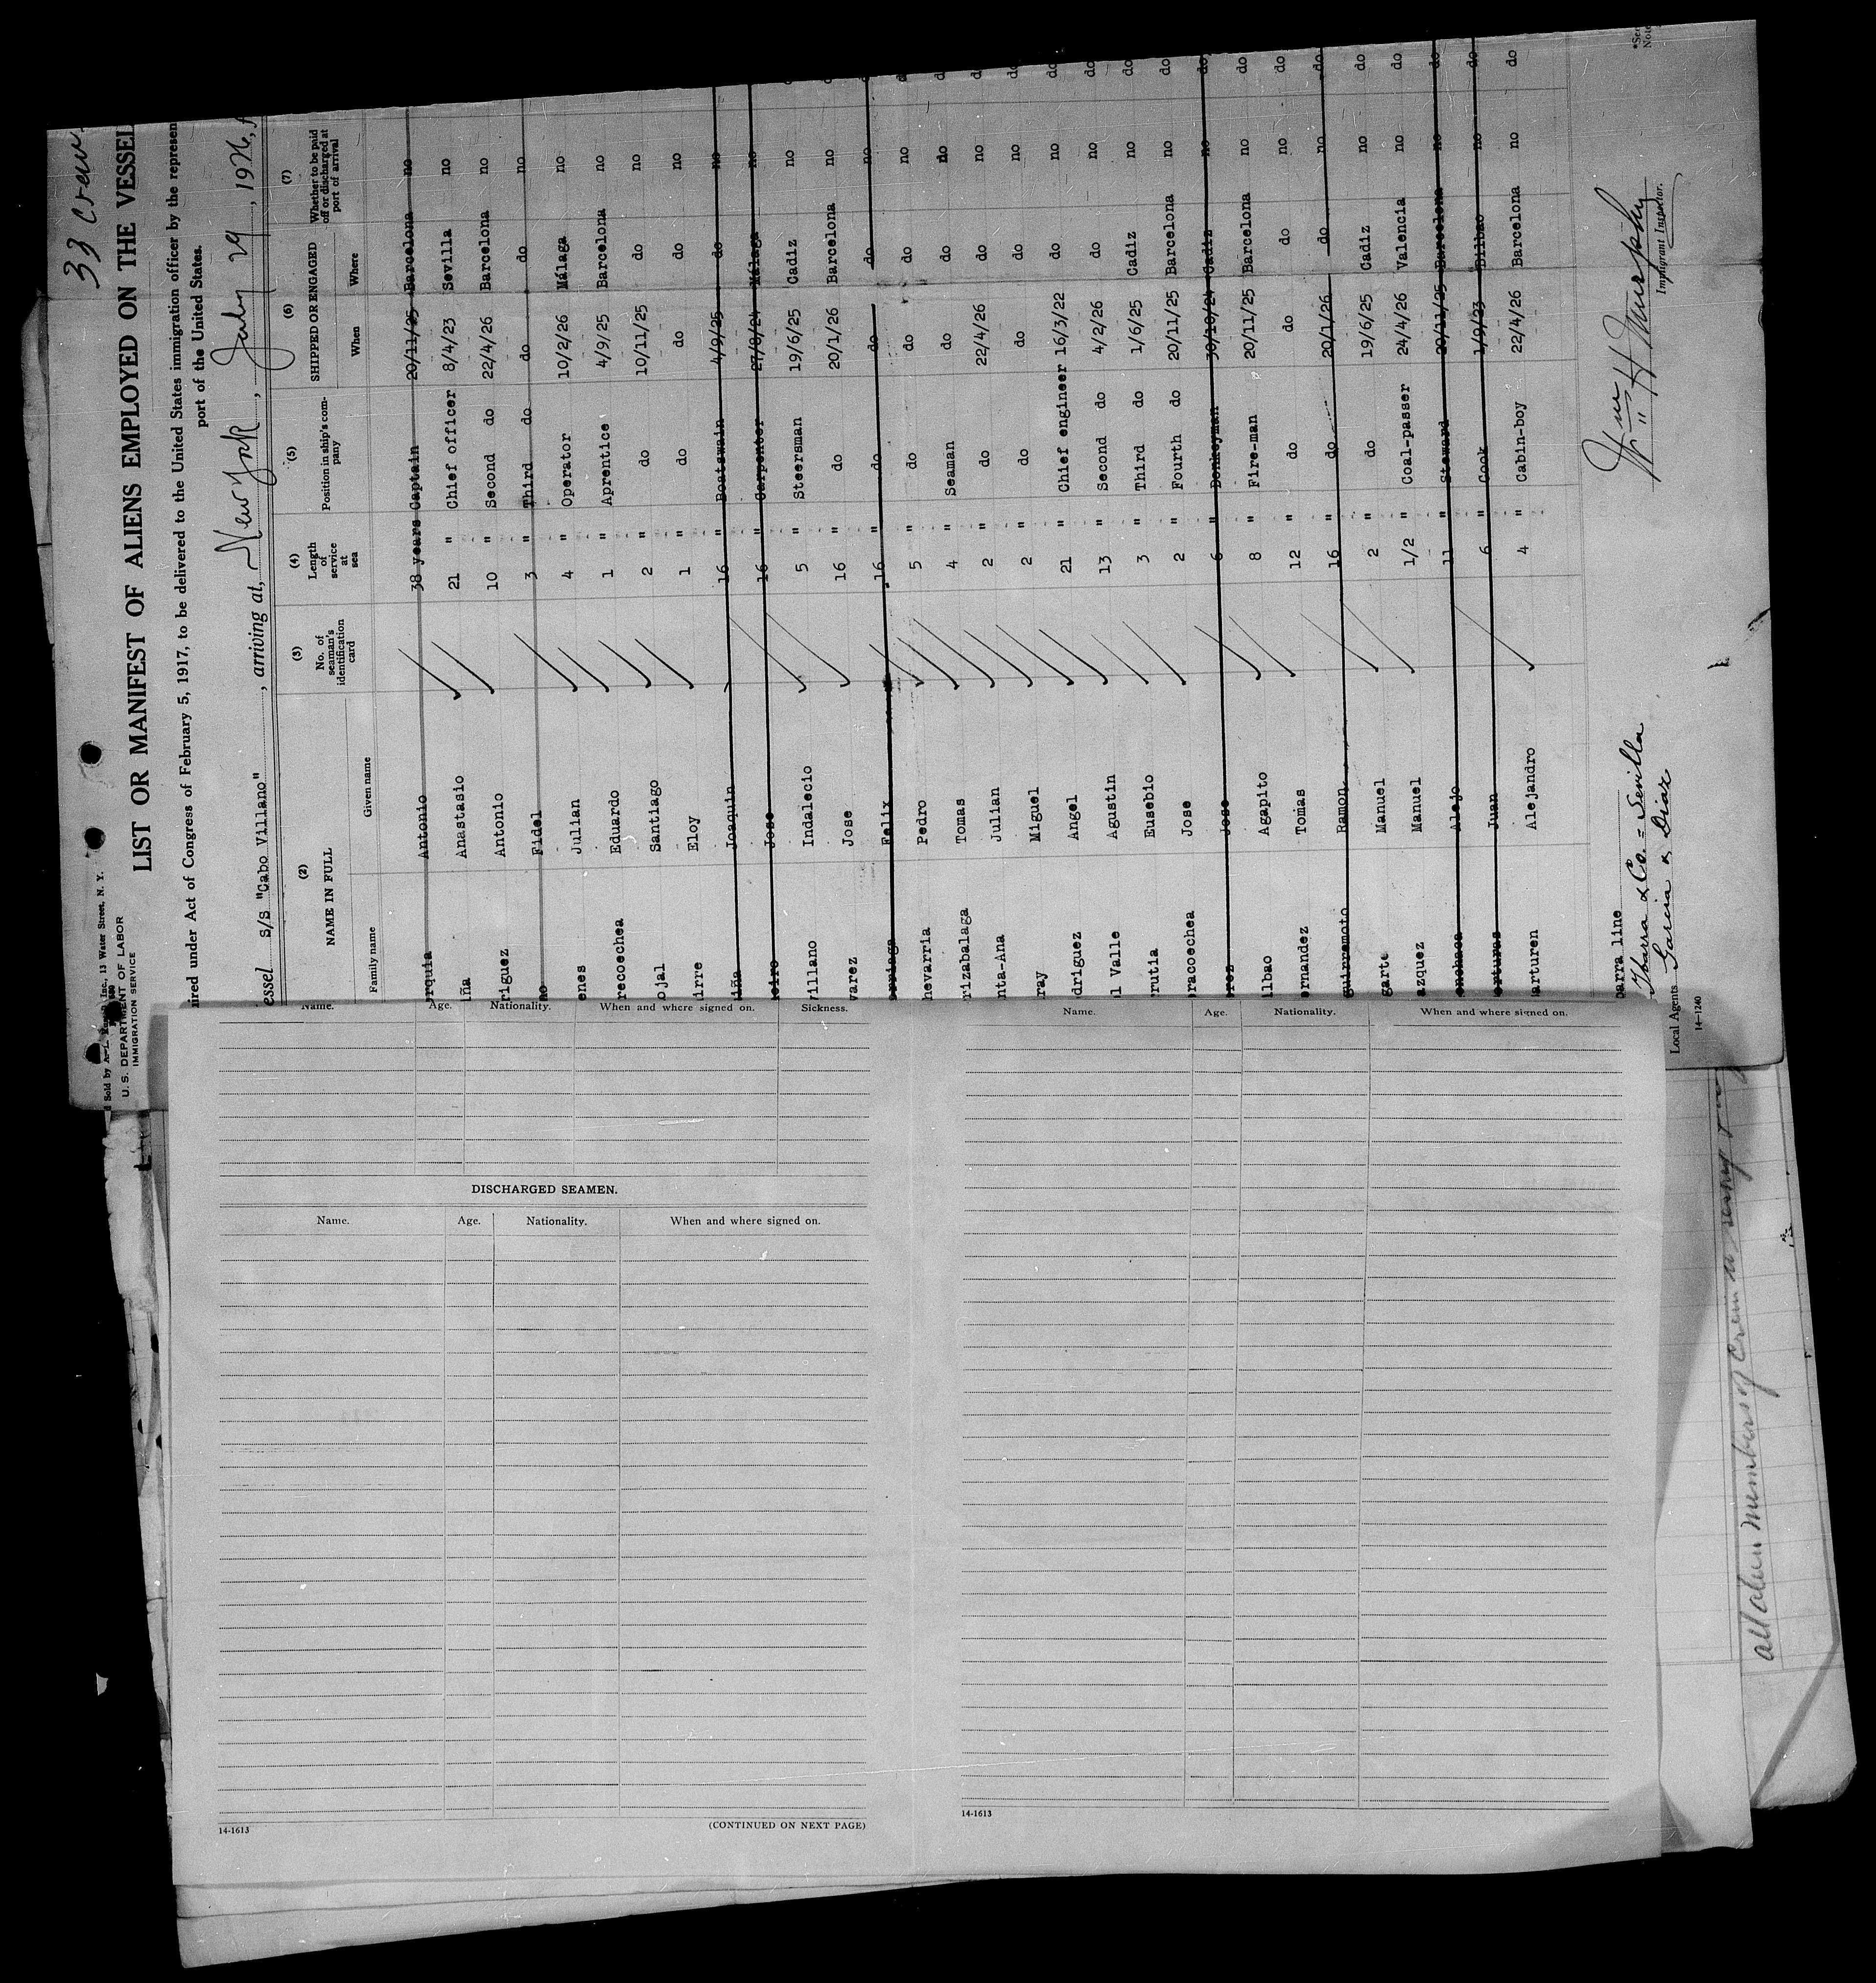 33 Crew
Sold by
Inc., 13 Water Street, N. Y.
U. S. DEPARTMENT OF LABOR
IMMIGRATION SERVICE
LIST OR MANIFEST OF ALIENS EMPLOYED ON THE VESSEL
ired under Act of Congress of February 5, 1917, to be delivered to the United States immigration officer by the represen
port of the United States.
essel S/S "Cabo Villano", arriving at, New York, July 29, 1926, f
(2) (3) (4) (5) (6) (7)
NAME IN FULL No. of seaman's identification card Length of service at sea Position in ship's company SHIPPED OR ENGAGED Whether to be paid off or discharged at port of arrival
Family name Given name When Where
rquia Antonio 38 years Captain 20/11/25 Barcelona no
iña Anastasio 21 " Chief officer 8/4/23 Sevilla no do
riguez Antonio 10 " Second do 22/4/26 Barcelona no do
no Fidel 3 " Third do do do no do
enes Julian 4 " Operator 10/2/26 Málaga no do
recoechea Eduardo 1 " Aprentice 4/9/25 Barcelona no do
ojal Santiago 2 " do 10/11/25 do no
irre Eloy 1 " do do do no
iña Joaquin 16 " Boatswain 4/9/25 do no
eiro Jose 16 " Carpenter 27/8/24 Málaga no
villano Indalecio 5 " Steersman 19/6/25 Cadiz no
varez Jose 16 " do 20/1/26 Barcelona no
Felix 16 " do do do no
hevarria Pedro 5 " do do do no
rizabalaga Tomas 4 " Seaman do do no
nta-Ana Julian 2 " do 22/4/26 do no do
ray Miguel 2 " do do do no do
driguez Angel 21 " Chief engineer 16/3/22 do no do
l Valle Agustin 13 " Second do 4/2/26 do no do
rutia Eusebio 3 " Third do 1/6/25 Cadiz no do
racoechea Jose 2 " Fourth do 20/11/25 Barcelona no do
rez Jose 6 " Donkeyman 30/10/24 Cadiz no do
lbao Agapito 8 " Fire-man 20/11/25 Barcelona no do
ernandez Tomas 12 " do do do no do
guirremoto Ramon 16 " do 20/1/26 do no do
garte Manuel 2 " do 19/6/25 Cadiz no do
azquez Manuel 1/2 " Coal-passer 24/4/26 Valencia no do
enchaca Alejo 11 " Steward 20/11/25 Barcelona no do
erturas Juan 6 " Cook 1/9/23 Bilbao no do
arturen Alejandro 4 " Cabin-boy 22/4/26 Barcelona no do
barra line
Ybarra & Co. = Sevilla
Local Agents Garcia & Diaz
14-1240
Wm H Murphy
Immigrant Inspector.
*See
Note
Name. Age. Nationality. When and where signed on. Sickness.
DISCHARGED SEAMEN.
Name. Age. Nationality. When and where signed on.
14-1613
(CONTINUED ON NEXT PAGE)
Name. Age. Nationality. When and where signed on.
14-1613
all alien members of crew